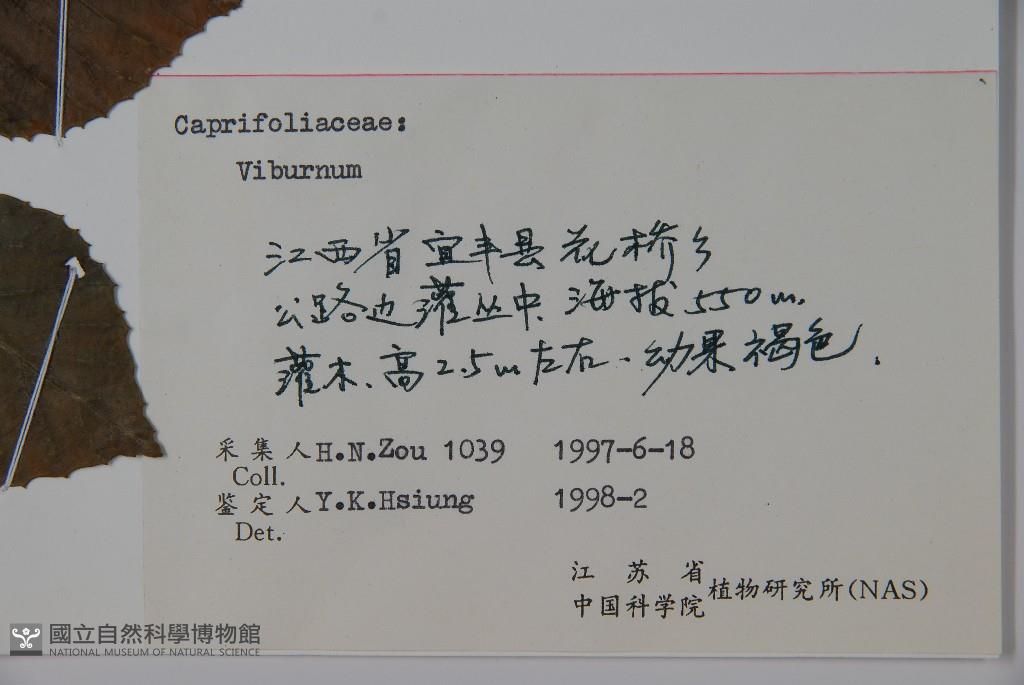 Caprifoliaceae:
Viburnum
江西省宜丰县花桥乡
公路边灌丛中、海拔550m.
灌木、高2.5m左右.幼果褐色.
采集人H.N.Zou 1039 1997-6-18
Coll.
鉴定人Y.K.Hsiung 1998-2
Det.
江苏省
中国科学院植物研究所(NAS)
國立自然科學博物館
NATIONAL MUSEUM OF NATURAL SCIENCE